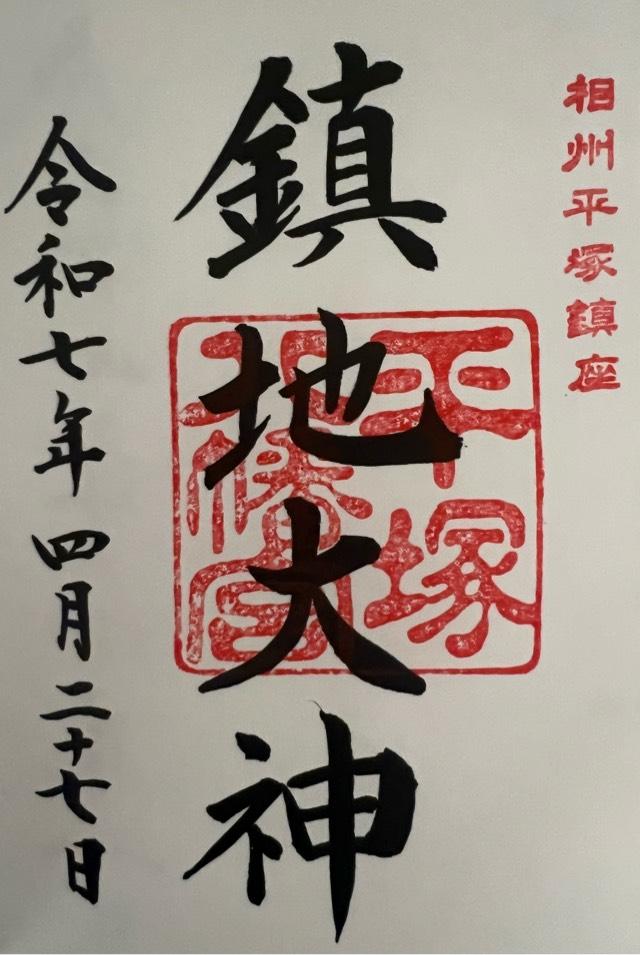 相州平塚鎮座
鎮地大神
平塚
八幡宮
令和七年四月二十七日